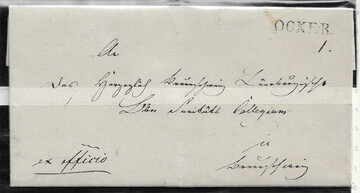 OCKER
1.
An
Das Herzoglich Braunschweig Lüneburgische
Ober Sanitäts Collegium
zu
Braunschweig
ex officio